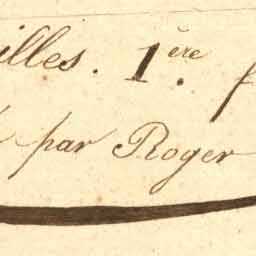 illes. 1.ère
par Roger